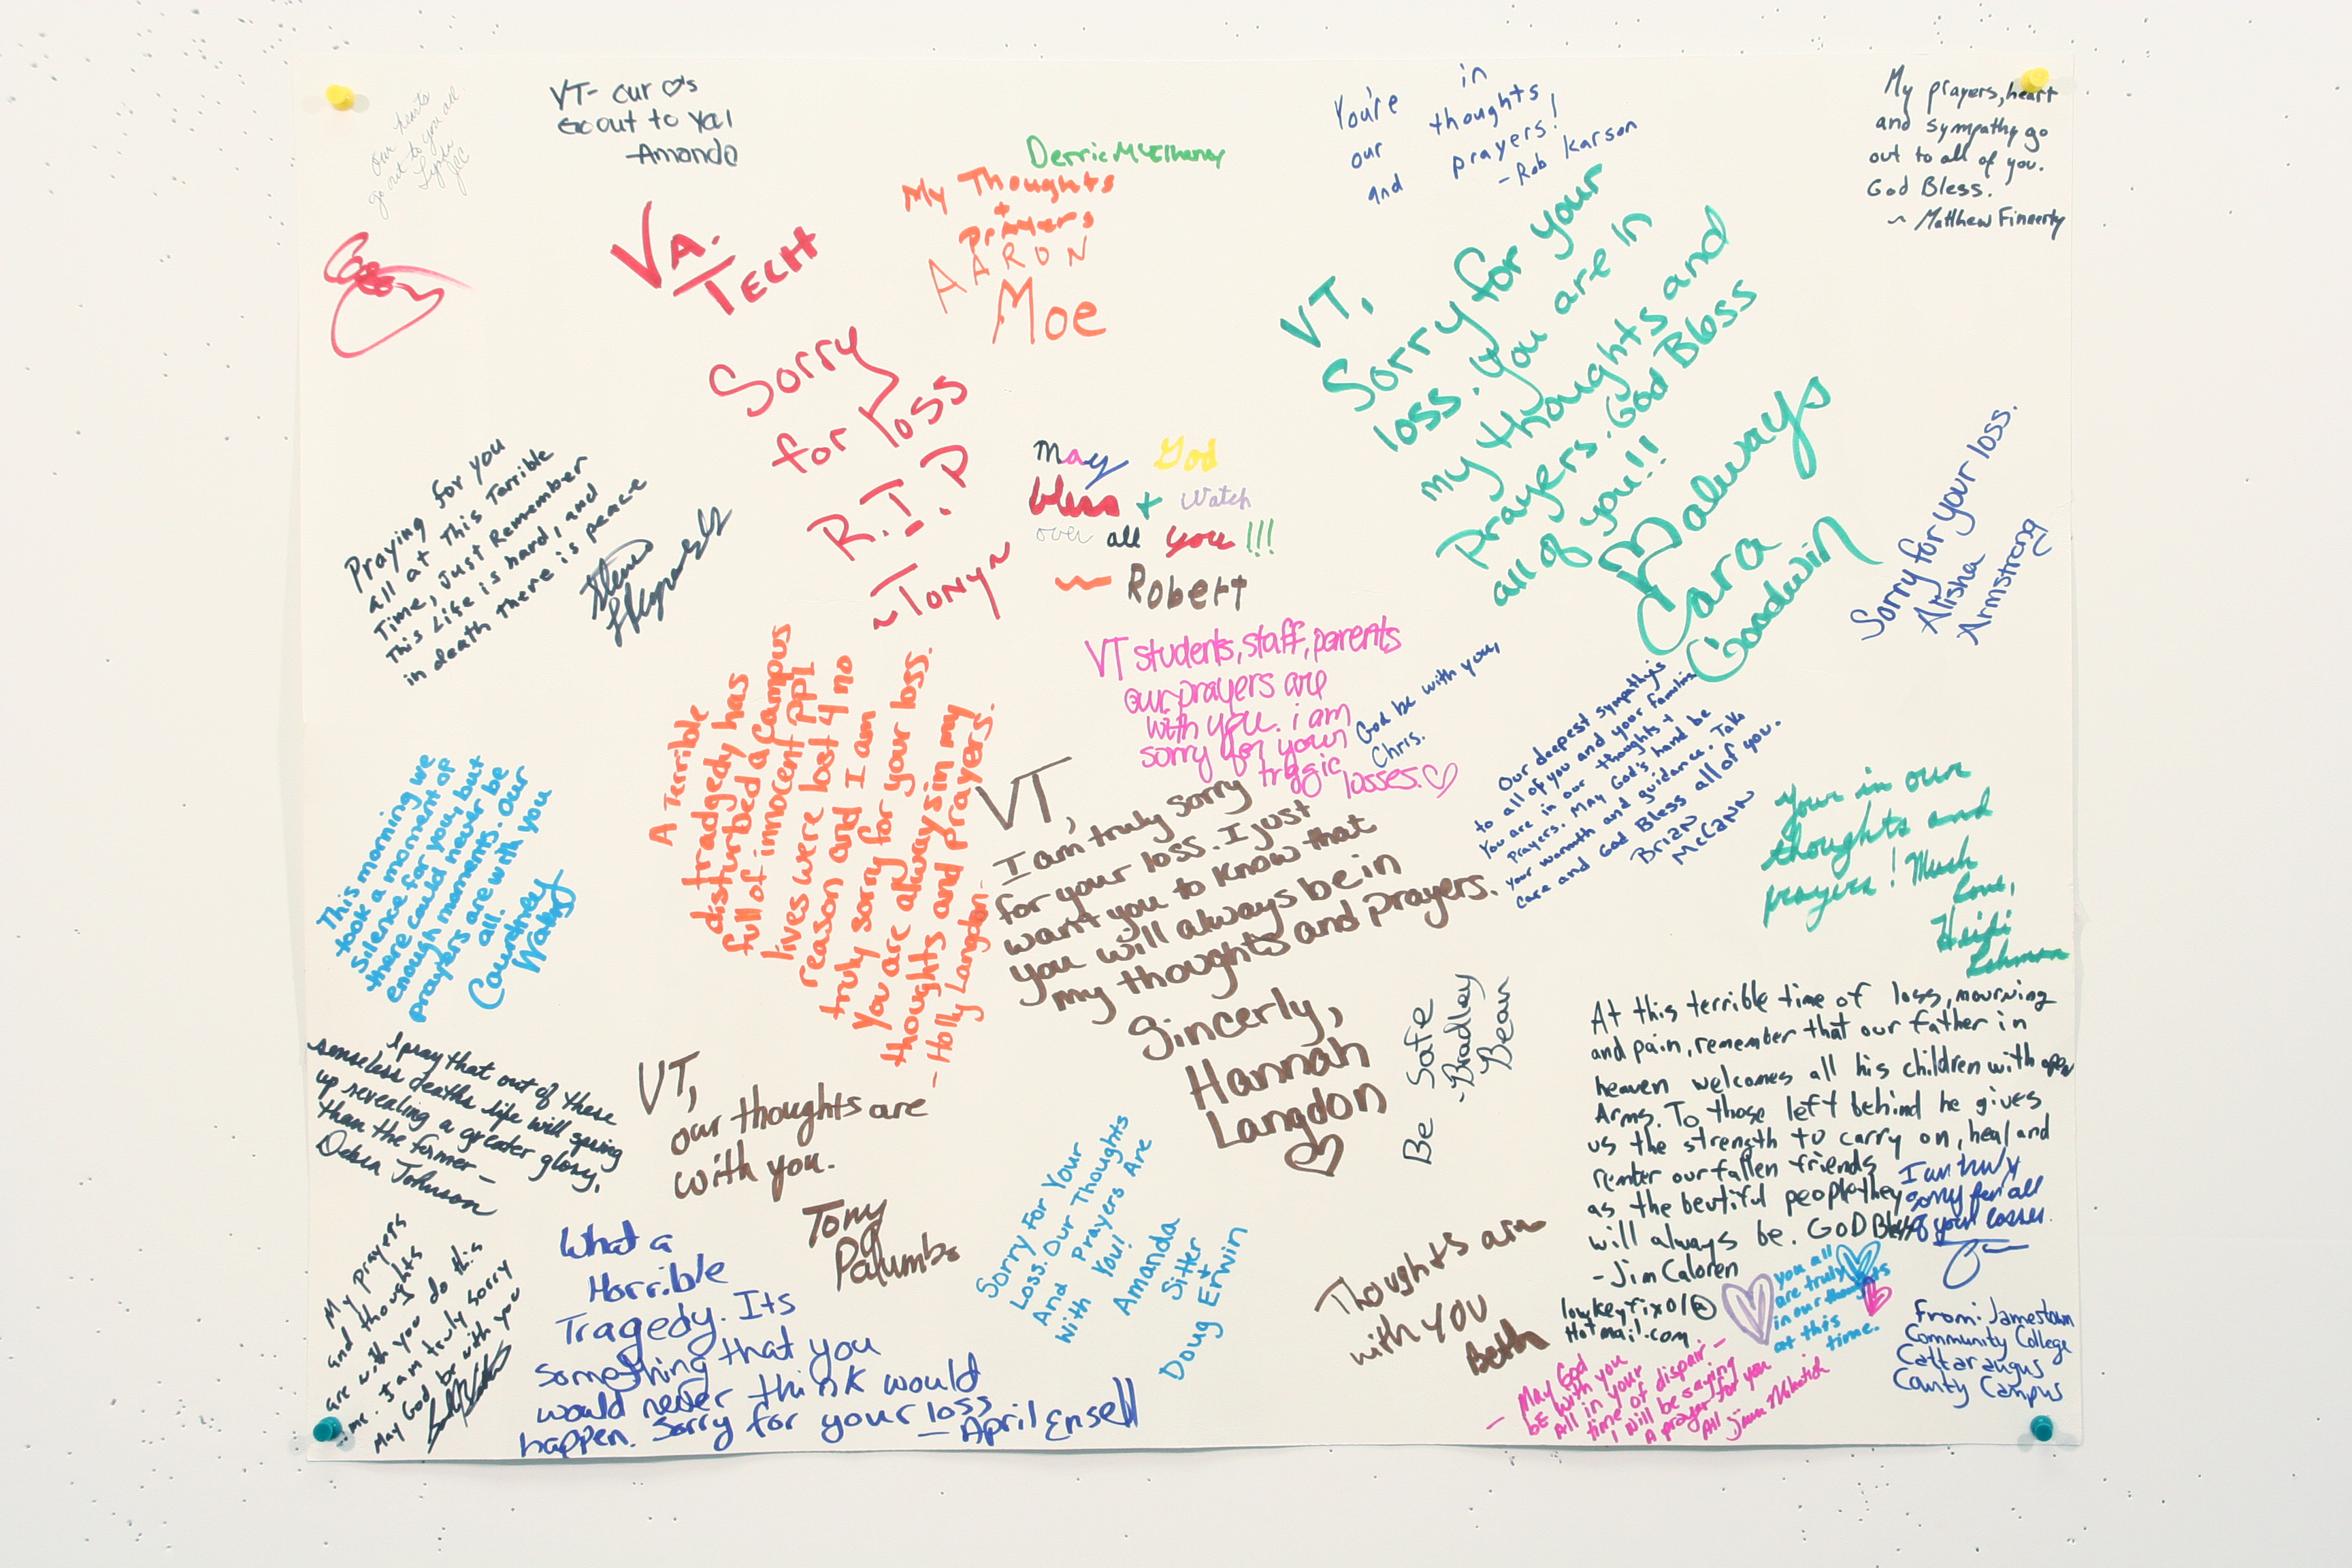 our hearts
go out to you all.
JCC
VT- our ♡'s
Go out to Ya!
-Amanda
Derric McElhaney
My Thoughts
+
Prayers
AARON
Moe
You're in
our thoughts
and prayers!
-Rob Karson
My prayers, heart
and sympathy go
out to all of you.
God Bless.
~ Matthew Finnerty
VA.
TECH
Sorry
for loss
R.I.P
~Tony~
VT,
Sorry for your
loss. You are in
my thoughts and
Prayers. God Bless
all of you!!
always
Cara
Goodwin
Praying for you
all at This Terrible
Time, Just Remember
This Life is hard, and
in death there is peace
May God
bless + Watch
over all you!!!
~ Robert
Sorry for your loss.
Alisha
Armstrong
VT students, staff, parents
our prayers are
with you. i am
sorry for your
tragic losses. ♡
God be with you,
Chris.
Our deepest sympathy's
to all of you and your families
You are in our thoughts +
Prayers. MAY God's hand be
your warmth and guidance. Take
care and God Bless all of you.
Brian
McCann
A Terrible
tradgedy has
disturbed a campus
full of innocent ppl
lives were lost 4 no
reason and I am
truly sorry for your loss.
You are always in my
thoughts and prayers.
-Holly Langdon-
This morning we
took a moment of
silence for you, but
there could never be
enough moments. Our
prayers are with you
all.
Courtney
VT,
I am truly sorry
for your loss. I just
want you to know that
you will always be in
my thoughts and prayers.
Sincerly,
Hannah
Langdon
♡
Your in our
thoughts and
prayers! Much
Love,
Heidi
Lehman
Be Safe
-Bradley
Bean
At this terrible time of loss, mourning
and pain, remember that our father in
heaven welcomes all his children with open
Arms. To those left behind he gives
us the strength to carry on, heal and
remter our fallen friends
as the beutiful people they
will always be. GOD Bless
-Jim Caloren
lowkeyfix01@
Hotmail.com
I am truly
sorry for all
of your losses.
I pray that out of these
senseless deaths life will spring
up revealing a greater glory,
than the former-
Debra Johnson
VT,
our thoughts are
with you.
Tony
Palumbo
Sorry For Your
Loss. Our Thoughts
And Prayers Are
With You!
Amanda
Sitter
+
Doug Erwin
My Prayers
and thoughts
are with you I do this
time. I am truly sorry
May God be with you
What a
Horrible
Tragedy. Its
something that you
would never think would
happen. Sorry for your loss
- April Ensell
Thoughts are
with YOU
Beth
you all
are truly
in our thoughts
at this
time.
- May God
be with you
All in your
time of dispair -
I will be saying
A prayer for you
All
From: Jamestown
Community College
Cattaraugus
County Campus